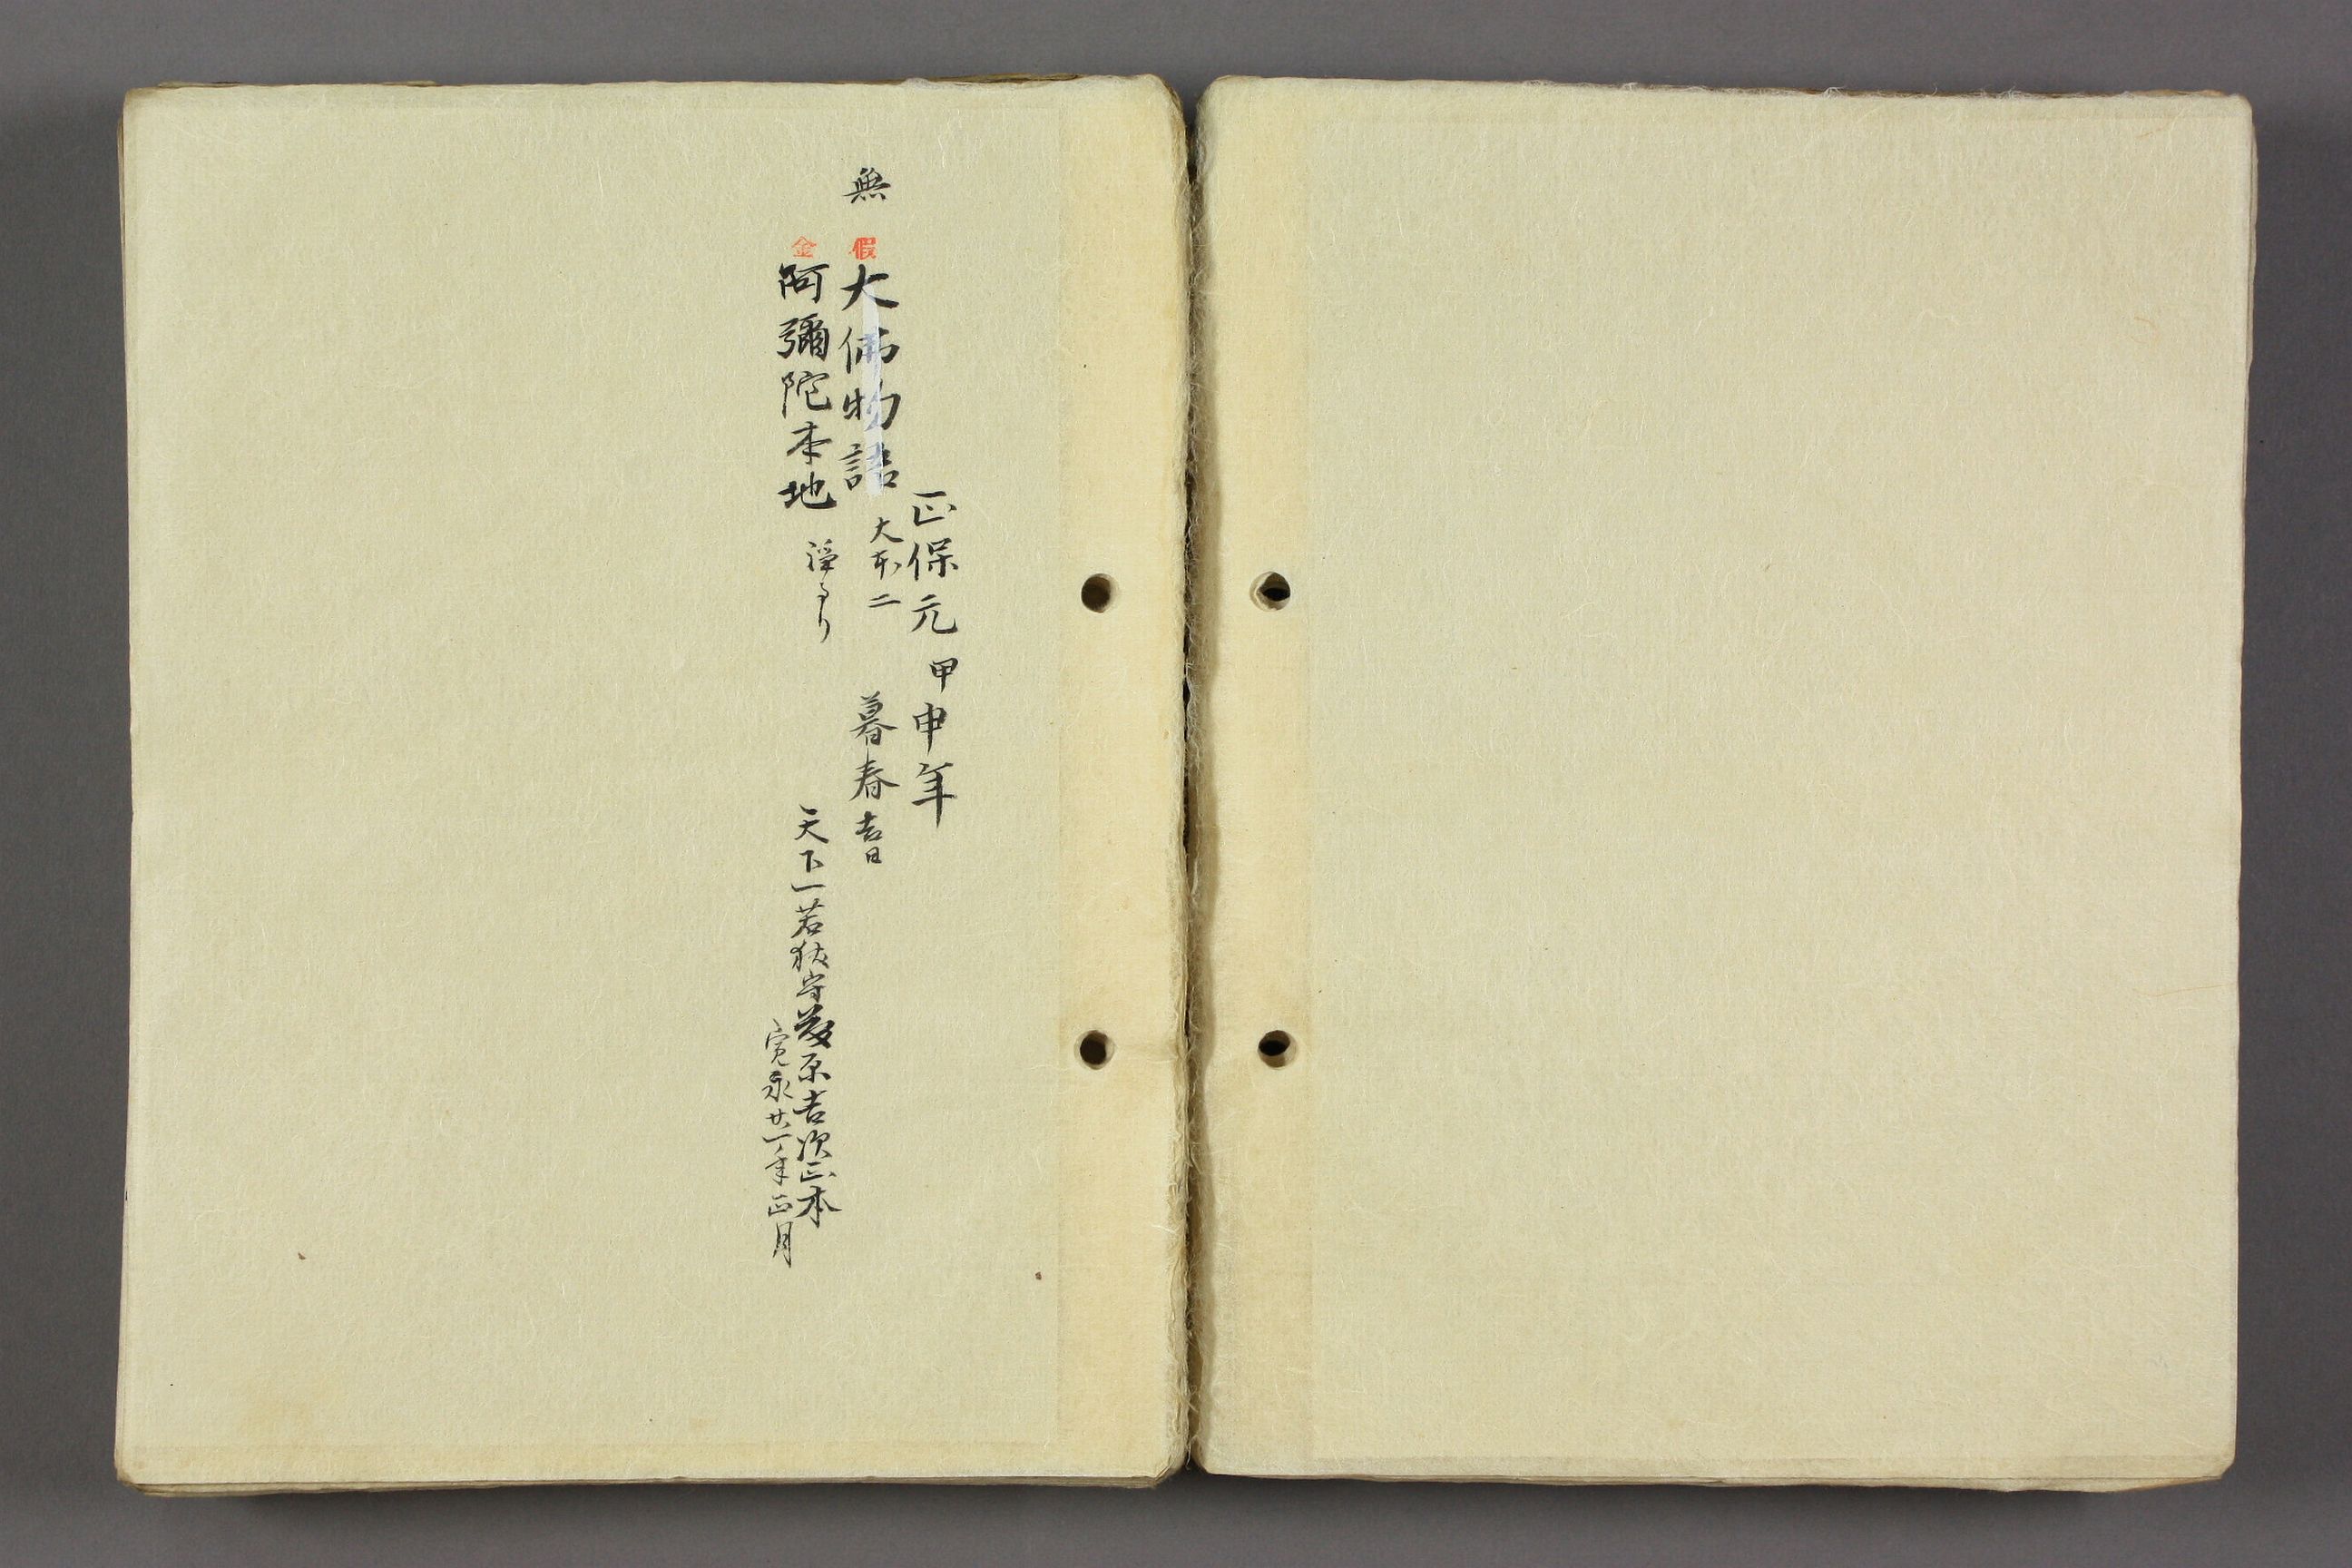 正保元甲申年
無 假 大佛物語 大本二 暮春吉日
金 阿彌陀本地 浄るり 天下一若狭守藤原吉次正本
寛永廿一年正月